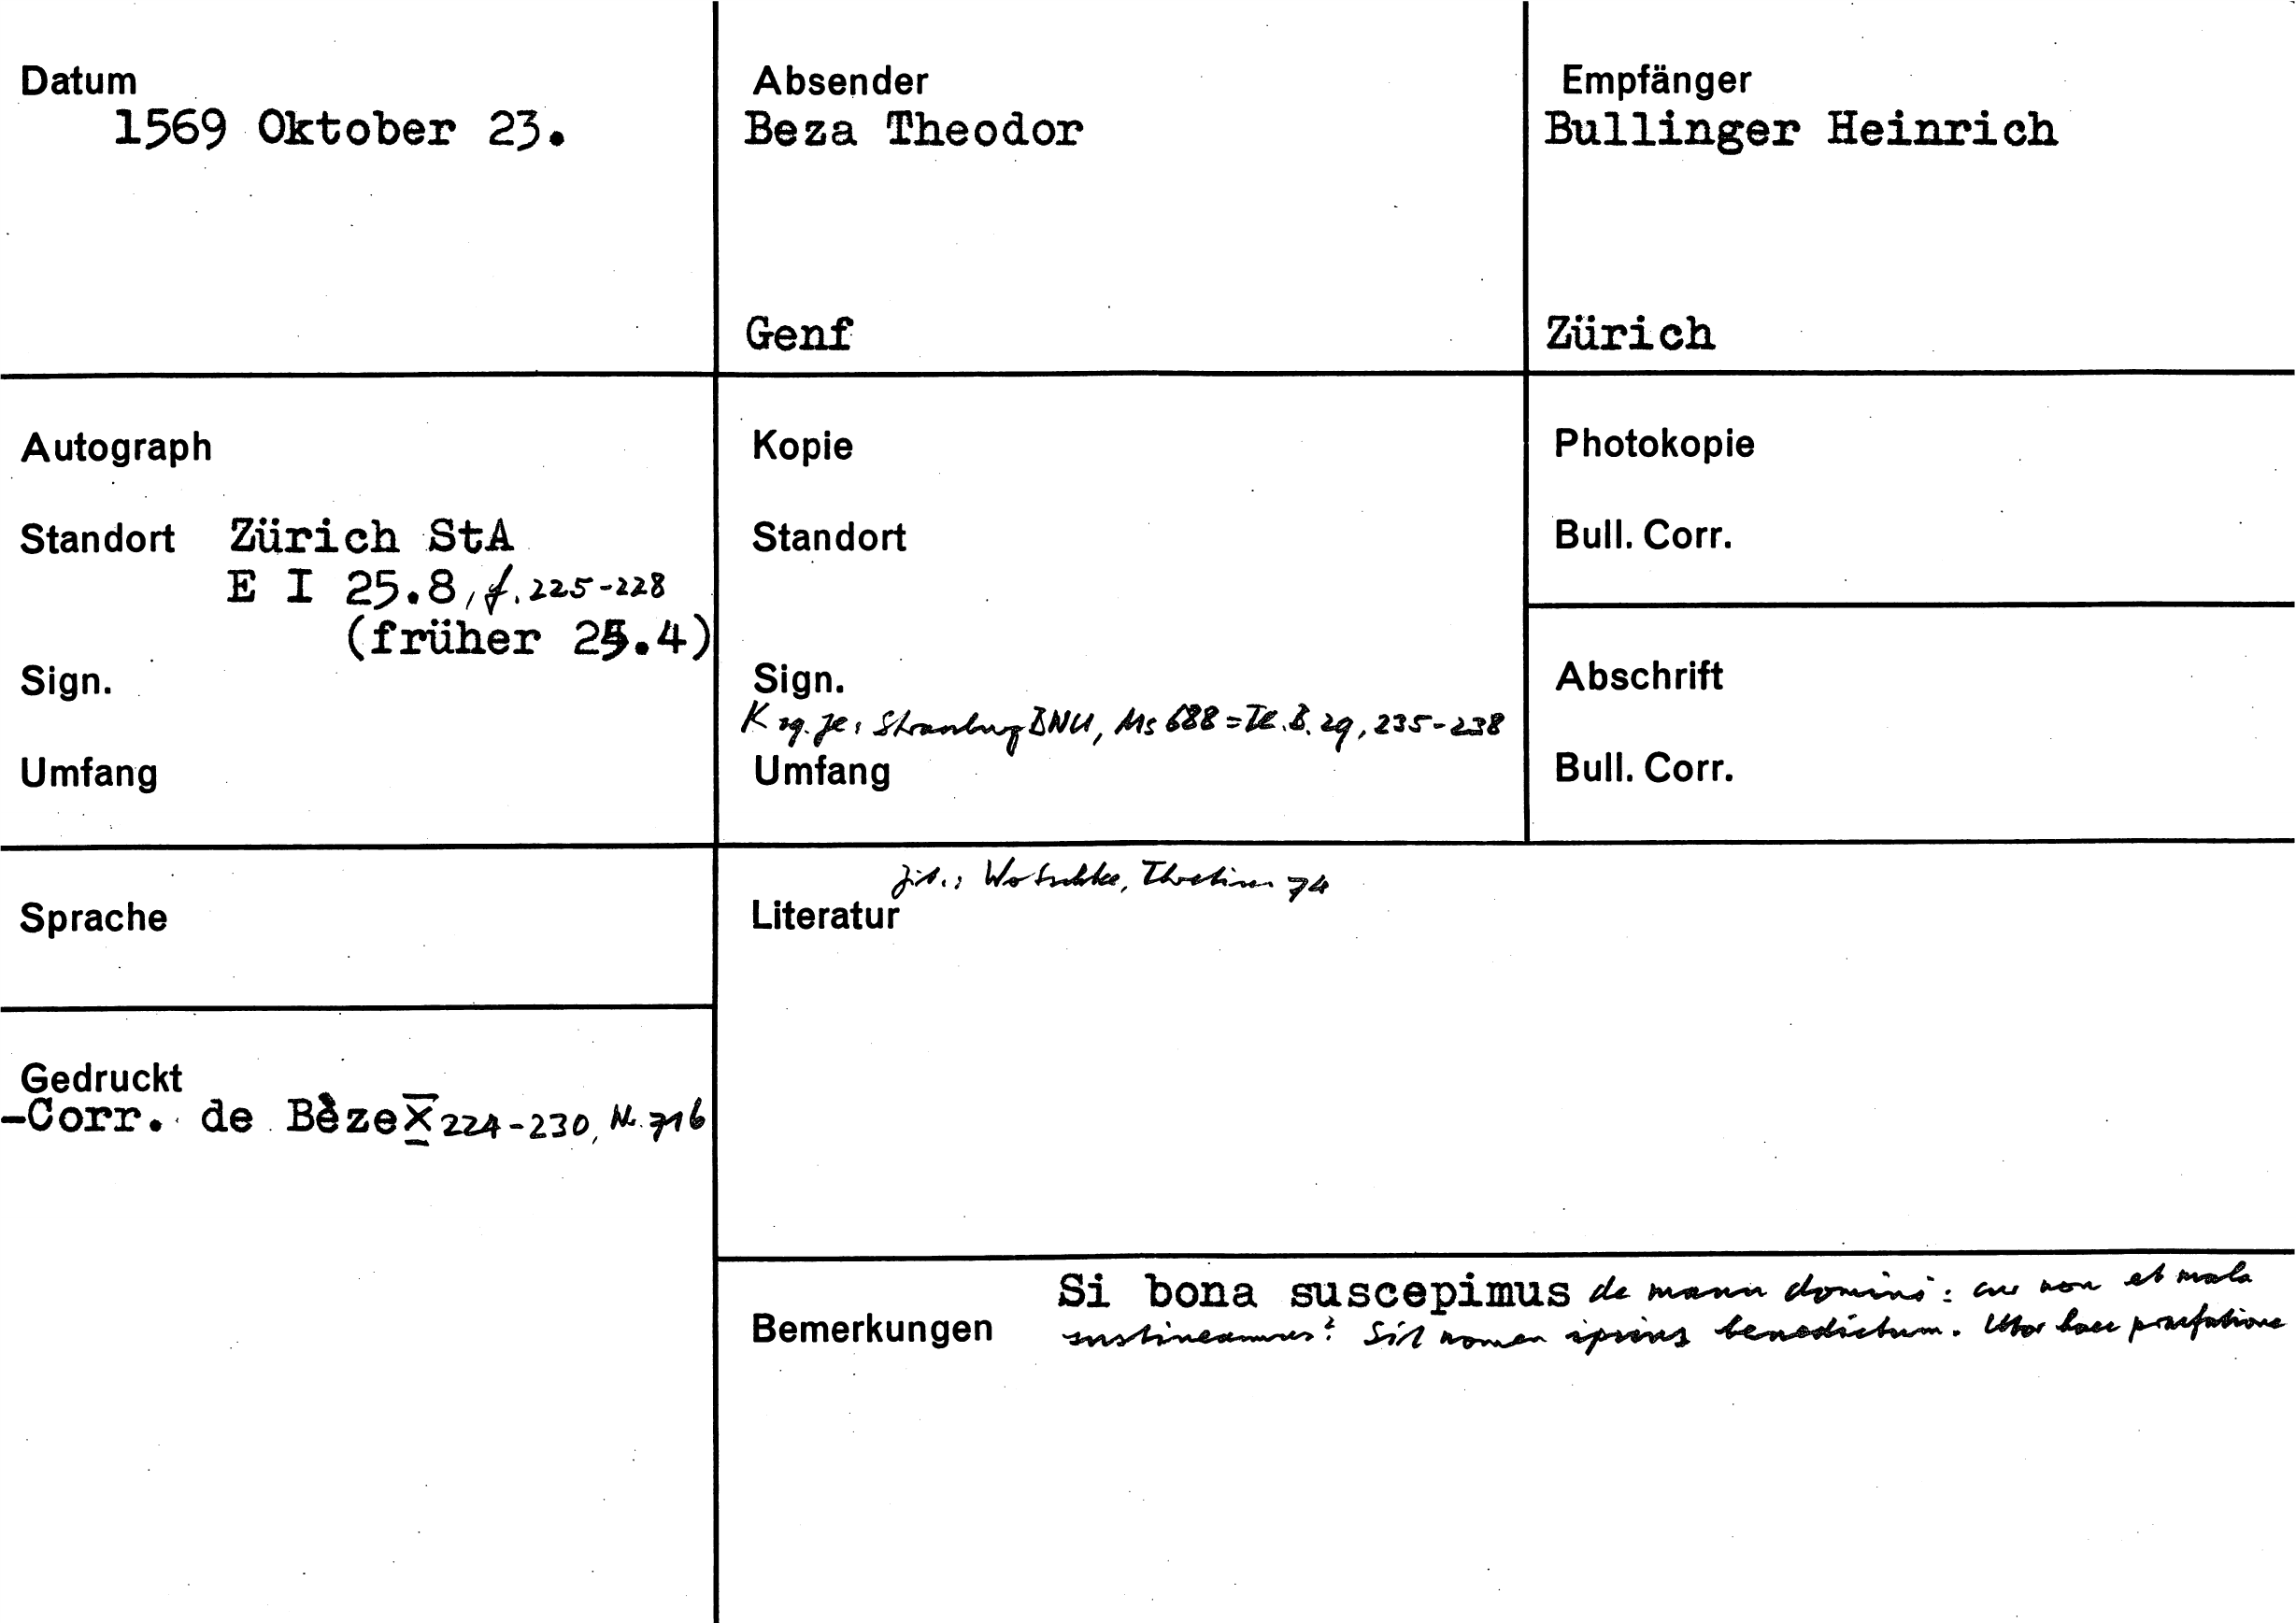 Datum
1569 Oktober 23.
Absender
Beza Theodor
Genf
Empfänger
Bullinger Heinrich
Zürich
Autograph
Standort Zürich StA
E I 25.8, f. 225-228
(früher 25.4)
Sign.
Umfang
Kopie
Standort
Sign.
Strassburg BNU, Ms 688 = Th. B. 29, 235-238
Umfang
Photokopie
Bull. Corr.
Abschrift
Bull. Corr.
Sprache
Gedruckt
-Corr. de Bèze X 224-230, Nr. 716
zit.: Wotschke, Thretius 74
Literatur
Bemerkungen
Si bona suscepimus de manu domini: cur non et mala
sustineamus? Sit nomen ipsius benedictum. Utor hac praefatione